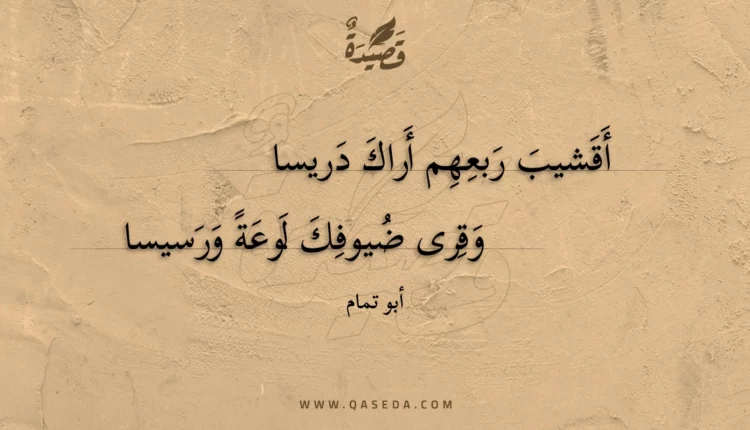 قَصِيْدَةٌ
أَقَشيبَ رَبعِهِم أَراكَ دَريسا
وَقِرى ضُيوفِكَ لَوعَةً وَرَسيسا
أبو تمام
WWW.QASEDA.COM